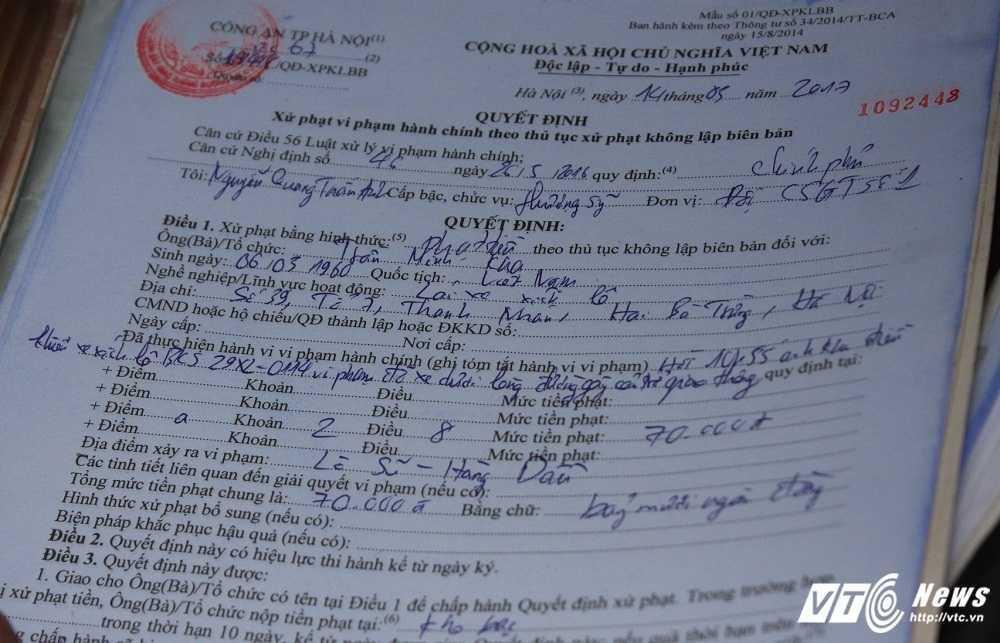 Mẫu số 01/QĐ-XPKLBB
Ban hành kèm theo Thông tư số 34/2014/TT-BCA
ngày 15/8/2014
CÔNG AN TP HÀ NỘI(1)
Số /QĐ-XPKLBB (2)
CỘNG HOÀ XÃ HỘI CHỦ NGHĨA VIỆT NAM
Độc lập - Tự do - Hạnh phúc
Hà Nội (3), ngày 14 tháng 05 năm 2017
1092448
QUYẾT ĐỊNH
Xử phạt vi phạm hành chính theo thủ tục xử phạt không lập biên bản
Căn cứ Điều 56 Luật xử lý vi phạm hành chính;
Căn cứ Nghị định số 46 ngày 26/5/2016 quy định:(4) chính phủ
Tôi: Nguyễn Quang Cấp bậc, chức vụ: thượng sỹ Đơn vị: Đội CSGT số 1
QUYẾT ĐỊNH:
Điều 1. Xử phạt bằng hình thức:(5) Phạt tiền theo thủ tục không lập biên bản đối với:
Ông(Bà)/Tổ chức: Trần Minh Kha
Sinh ngày: 06/03/1960 Quốc tịch: Việt Nam
Nghề nghiệp/Lĩnh vực hoạt động: Lái xe xích lô
Địa chỉ: Số 39, Tổ Thanh Nhàn, Hai Bà Trưng, Hà Nội
CMND hoặc hộ chiếu/QĐ thành lập hoặc ĐKKD số:
Ngày cấp: Nơi cấp:
Đã thực hiện hành vi vi phạm hành chính (ghi tóm tắt hành vi vi phạm) Hồi 10h55 anh Kha điều
khiển xe xích lô BKS 29XL-0114 vi phạm Để xe dưới lòng đường gây cản trở giao thông quy định tại:
+ Điểm Khoản Điều Mức tiền phạt:
+ Điểm Khoản Điều Mức tiền phạt:
+ Điểm a Khoản 2 Điều 8 Mức tiền phạt: 70.000đ
+ Điểm Khoản Điều Mức tiền phạt:
Địa điểm xảy ra vi phạm: Lò Sũ - Hàng Dầu
Các tình tiết liên quan đến giải quyết vi phạm (nếu có):
Tổng mức tiền phạt chung là: 70.000đ Bằng chữ: bảy mươi ngàn đồng
Hình thức xử phạt bổ sung (nếu có):
Biện pháp khắc phục hậu quả (nếu có):
Điều 2. Quyết định này có hiệu lực thi hành kể từ ngày ký.
Điều 3. Quyết định này được:
1. Giao cho Ông(Bà)/Tổ chức có tên tại Điều 1 để chấp hành Quyết định xử phạt. Trong trường hợp
bị xử phạt tiền, Ông(Bà)/Tổ chức nộp tiền phạt tại:(6) Kho bạc
trong thời hạn 10 ngày, kể từ ngày được giao
VTC News
http://vtc.vn